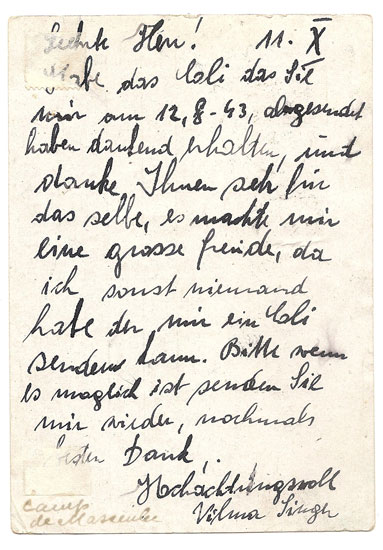 Herr! 11. X
Habe das Coli das Sie
mir am 12, 8-43, abgesendet
haben dankend erhalten, und
danke Ihnen sehr für
das selbe, es machte mir
eine grosse freude, da
ich sonst niemand
habe der mir ein Coli
senden kann. Bitte wenn
es maglich ist senden Sie
mir wieder, nochmals
besten Dank!
Hochachtungsvoll
Vilma Singer
camp
de